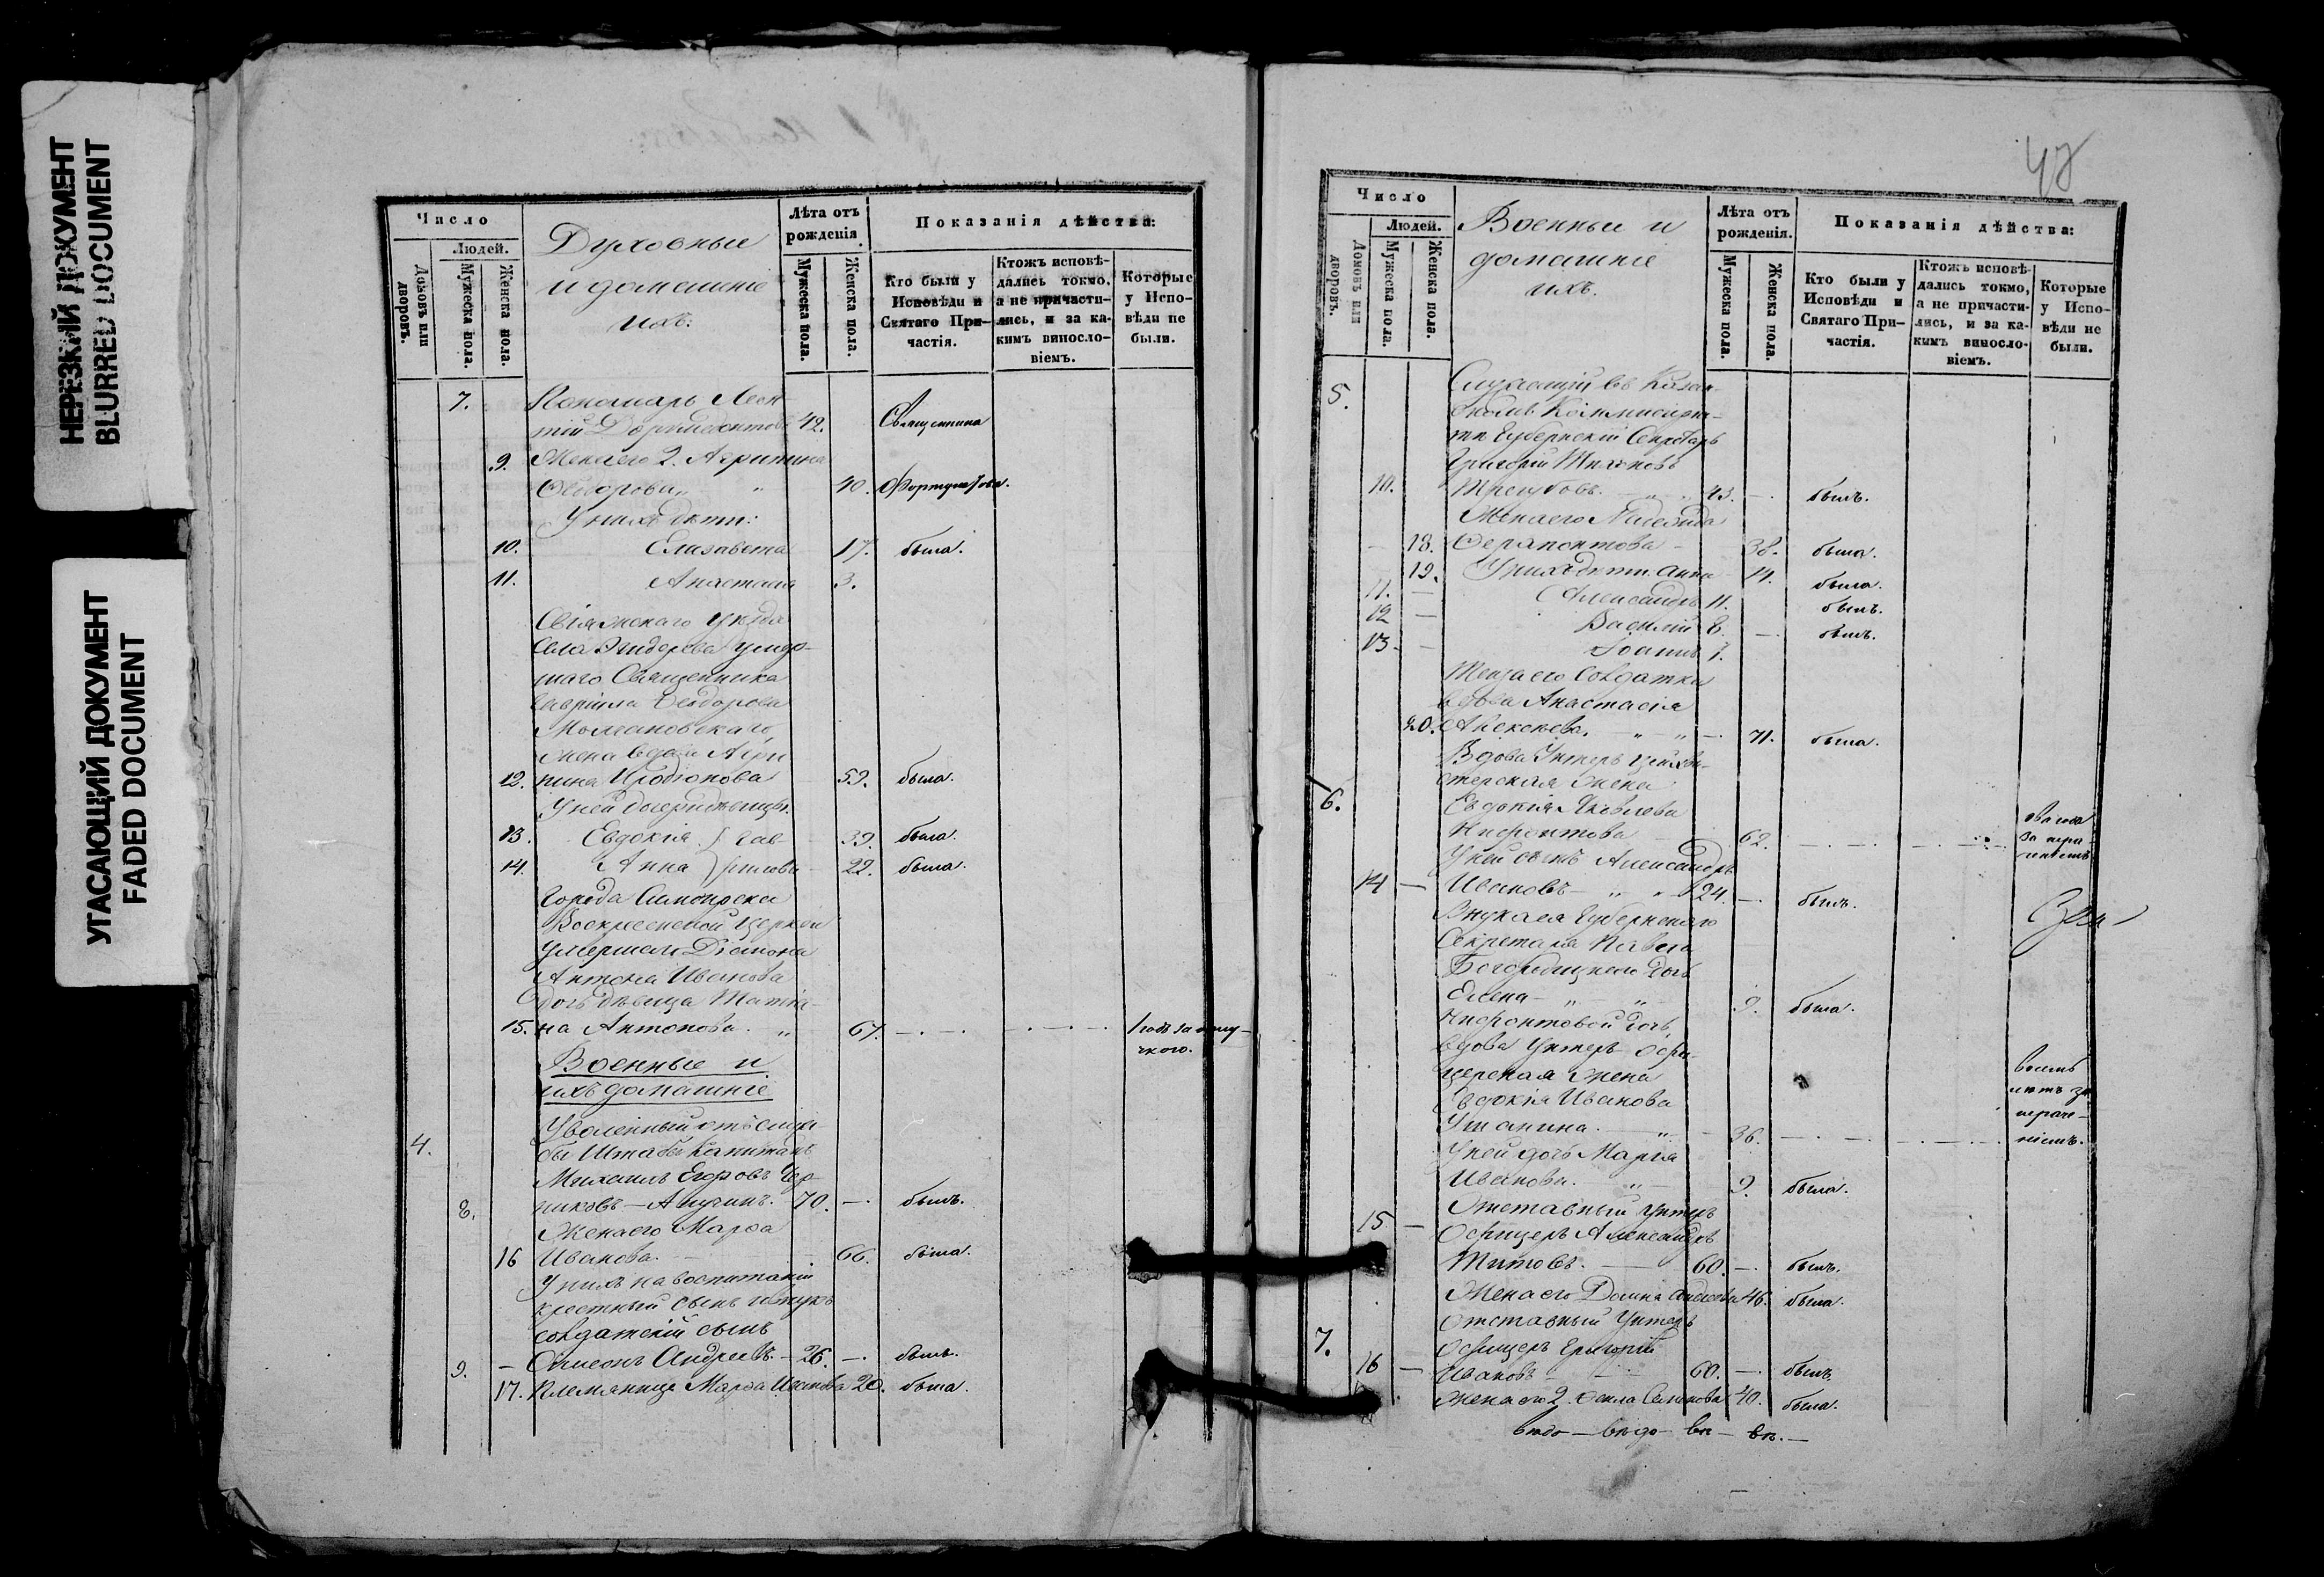 НЕРЕЗКИЙ ДОКУМЕНТ
BLURRED DOCUMENT
УГАСАЮЩИЙ ДОКУМЕНТ
FADED DOCUMENT
Число
Людей.
Домовъ или дворовъ.
Мужеска пола.
Женска пола.
Духовные
и домашніе
ихъ.
Лѣта отъ рожденія.
Мужеска пола.
Женска пола.
Показанія дѣйства:
Кто были у Исповѣди и Святаго Причастія.
Ктожъ исповѣдались токмо, а не причастились, и за какимъ винословіемъ.
Которые у Исповѣди не были.
7. Пономарь Леон
тій Доримедонтовъ 42. Священника
9. Жена его 2. Агрипина
40.
У нихъ дѣти:
10. Елизавета 17. была.
11. Анастасія 3.
Свіяжскаго уѣзда
села умер
шаго Священника
Гавріила Ѳеодорова
жена вдова Агри
12. пина Иродіонова 59. была.
У ней дочери дѣвицы.
13. Евдокія Гав 39. была.
14. Анна рилова 22. была.
Города Симбирска
Воскресенской церкви
умершаго Діакона
Антона Иванова
дочь дѣвица Татіа-
15. на Антонова. " 67. 1 годъ за
Военные и
ихъ домашніе
4. Уволенный отъ служ
бы Штабсъ Капитанъ
Михаилъ Егоровъ
8. никовъ — Аничинъ. 70. — былъ.
Жена его Марѳа
16 Иванова. 66. была.
У нихъ на воспитаніи
крестный сынъ
солдатскій сынъ
9. — Симеонъ Андреевъ. — 26. — былъ.
17. Племянница Марѳа Иванова 20. была.
47
Число
Людей.
Домовъ или дворовъ.
Мужеска пола.
Женска пола.
Военные и
домашніе
ихъ.
Лѣта отъ рожденія.
Мужеска пола.
Женска пола.
Показанія дѣйства:
Кто были у Исповѣди и Святаго Причастія.
Ктожъ исповѣдались токмо, а не причастились, и за какимъ винословіемъ.
Которые у Исповѣди не были.
5. Служащій въ Казан-
скомъ Коммисаріа-
тѣ Губернскій Секретарь
Григорій Тихоновъ
10. Трегубовъ. 43. — былъ.
Жена его Надежда
18. Ѳерапонтова — 38. была.
19. У нихъ дѣти Анна 14. была.
11. — Александръ 11. былъ.
12 — Василій 8. — былъ.
13 — Іоаннъ 1.
Теща его Солдатка
вдова Анастасія
20. Алексѣева. — " — " — 71. была.
Вдова Унтеръ
стерская жена
6. Евдокія Яковлева
Нифонтова 62.
У ней сынъ Александръ
14 — Ивановъ — " " 24. — былъ.
Внука ея Губернскаго
Секретаря Павла
Богородицкаго дочь
Елена — " — " 9. была.
Нифонтовой дочь,
вдова Унтеръ Офи-
церская жена
Евдокія Иванова
Ушанина. — " — 36. восемь лѣтъ за
У ней дочь Марія
Иванова. — " — 9. была.
Отставный Унтеръ
15 — Офицеръ Александръ
Титовъ. — 60. — былъ.
Жена его 46. была.
Отставный Унтеръ
7. Офицеръ Григорій
16 — Ивановъ 60. — былъ.
Жена его 2. Ѳекла Семенова 40. была.